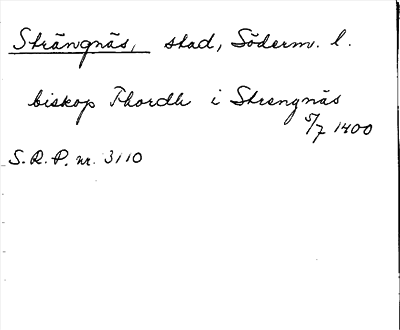 Strängnäs, stad, Söderm. l.
biskop Thordh i Strengnäs
5/7 1400
S.R.P. nr. 3110